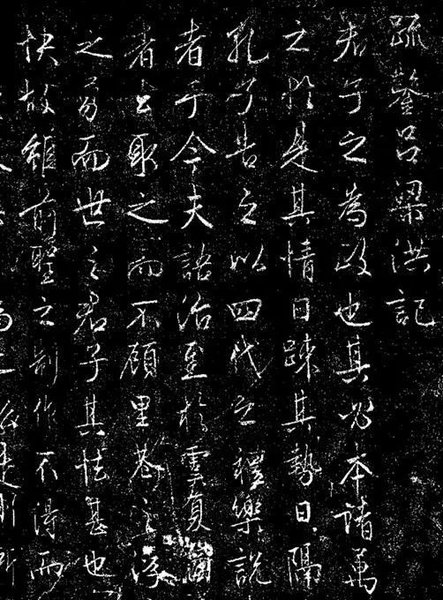 疏鑿呂梁洪記
君子之為政也其必本諸萬
之於是其情日踈其勢日隔
孔子告之以四代之禮樂説
者乎今夫語治至於虞夏
者取之而不顧里巷之浮
之而世之君子其怯甚也
快故雖前聖之制作不得而